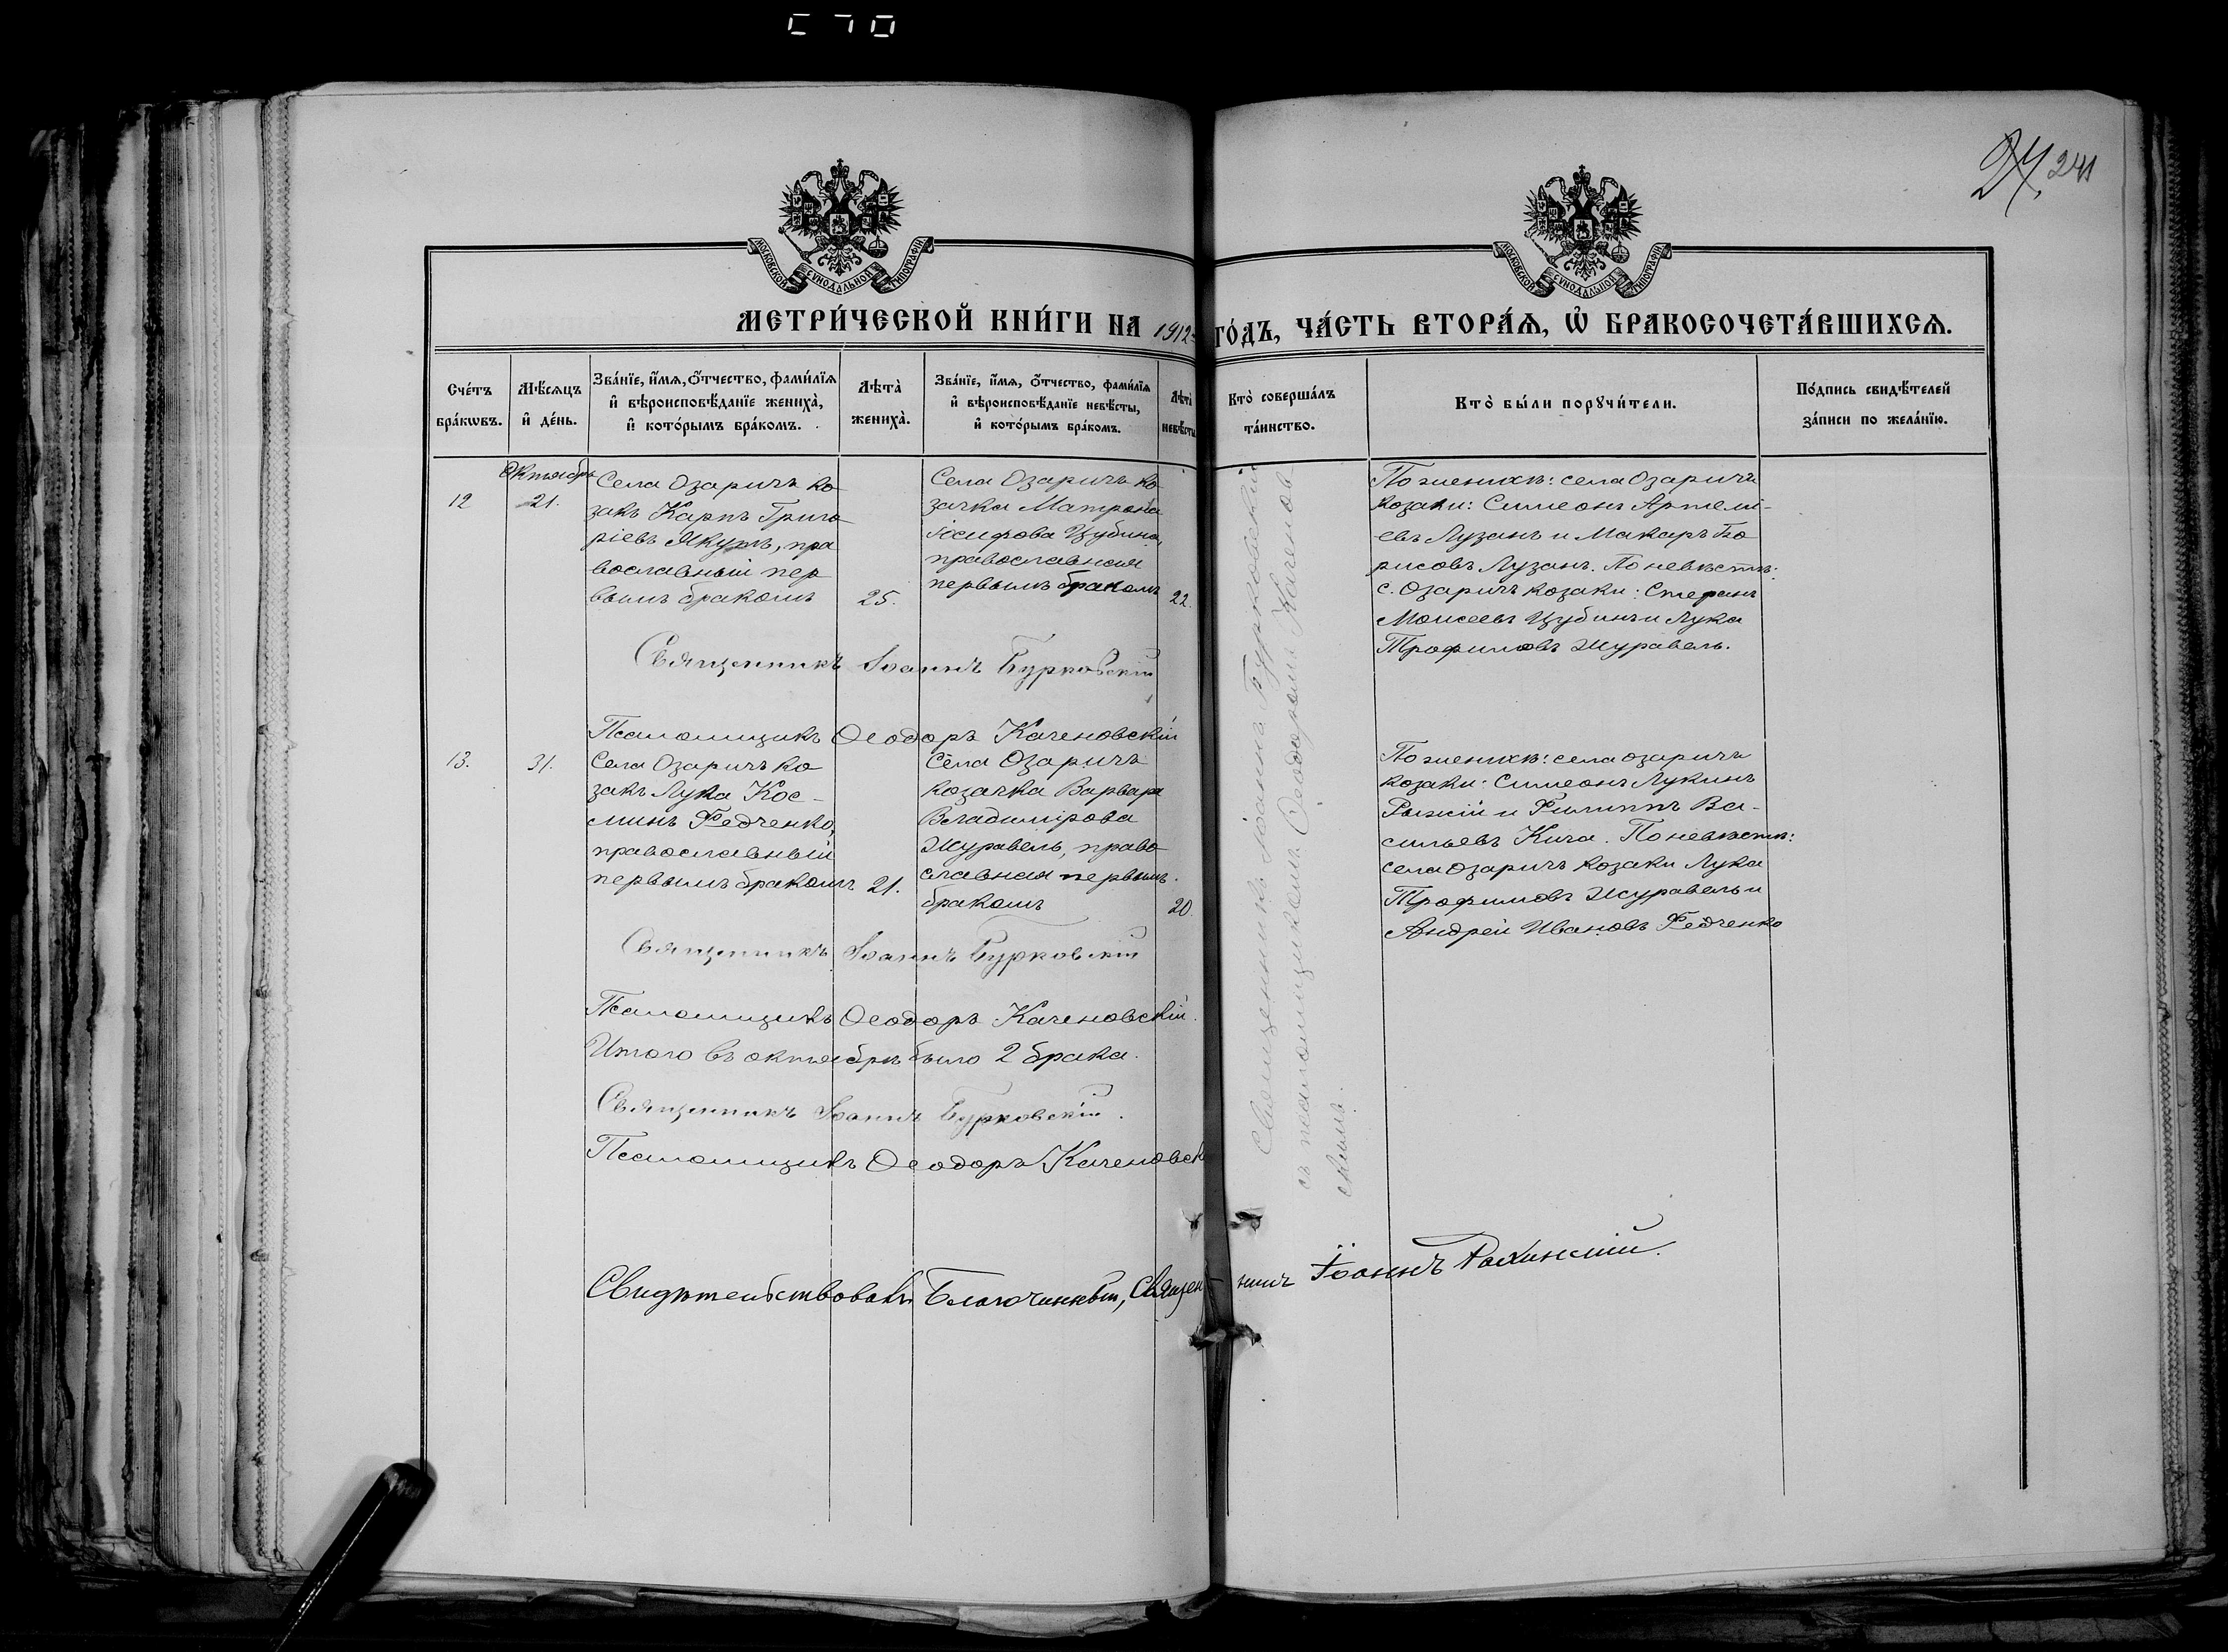 24. 241
МОСКОВСКОЙ СѴНОДАЛЬНОЙ ТИПОГРАФІИ
МОСКОВСКОЙ СѴНОДАЛЬНОЙ ТИПОГРАФІИ
МЕТРИ́ЧЕСКОЙ КНИ́ГИ НА 1912 ГО́ДЪ, ЧА́СТЬ ВТОРА́Ѧ, Ѡ БРАКОСОЧЕТА́ВШИХСѦ.
Сче́тъ бра́кѡвъ.
Мѣ́сѧцъ и де́нь.
Зва́нїе, и́мѧ, о́тчество, фами́лїѧ и вѣроисповѣ́данїе жениха̀, и кото́рымъ бра́комъ.
Лѣта̀ жениха̀.
Зва́нїе, и́мѧ, о́тчество, фами́лїѧ и вѣроисповѣ́данїе невѣ́сты, и кото́рымъ бра́комъ.
Лѣта̀ невѣ́сты
Кто̀ соверша́лъ та́инство.
Кто̀ бы́ли порꙋчи́тели.
По́дпись свидѣ́телей за́писи по жела́нїю.
12
Октябрь
21.
Села Озаричъ ко
закъ Карпъ Григо
ріевъ Якутъ, пра
вославный пер
вымъ бракомъ
25.
Села Озаричъ ко
зачка Матрона
Іосифова Цубина,
православная
первымъ бракомъ
22.
Священникъ Іоаннъ Бурковскій
съ псаломщикомъ Ѳеодоромъ Каченов
скимъ.
По женихѣ: села Озаричъ
козаки: Симеонъ Артемі-
евъ Лузанъ и Макаръ Бо
рисовъ Лузанъ. По невѣстѣ:
с. Озаричъ козаки: Стефанъ
Моисеевъ Цубинъ и Лука
Трофимовъ Журавель.
Священникъ Іоаннъ Бурковскій
Псаломщикъ Ѳеодоръ Каченовскій
13.
31.
Села Озаричъ ко
закъ Лука Кос-
минъ Федченко,
православный
первымъ бракомъ
21.
Села Озаричъ
козачка Варвара
Владимірова
Журавель, право
славная первымъ
бракомъ
20.
По женихѣ: села Озаричъ
козаки: Симеонъ Лукинъ
Рыжій и Филиппъ Ва-
сильевъ Кича. По невѣстѣ:
села Озаричъ козаки Лука
Трофимовъ Журавель и
Андрей Ивановъ Федченко
Священникъ Іоаннъ Бурковскій
Псаломщикъ Ѳеодоръ Каченовскій.
Итого въ октябрѣ было 2 брака.
Священникъ Іоаннъ Бурковскій.
Псаломщикъ Ѳеодоръ Каченовск
Свидѣтельствовалъ Благочинный, Священникъ Іоаннъ